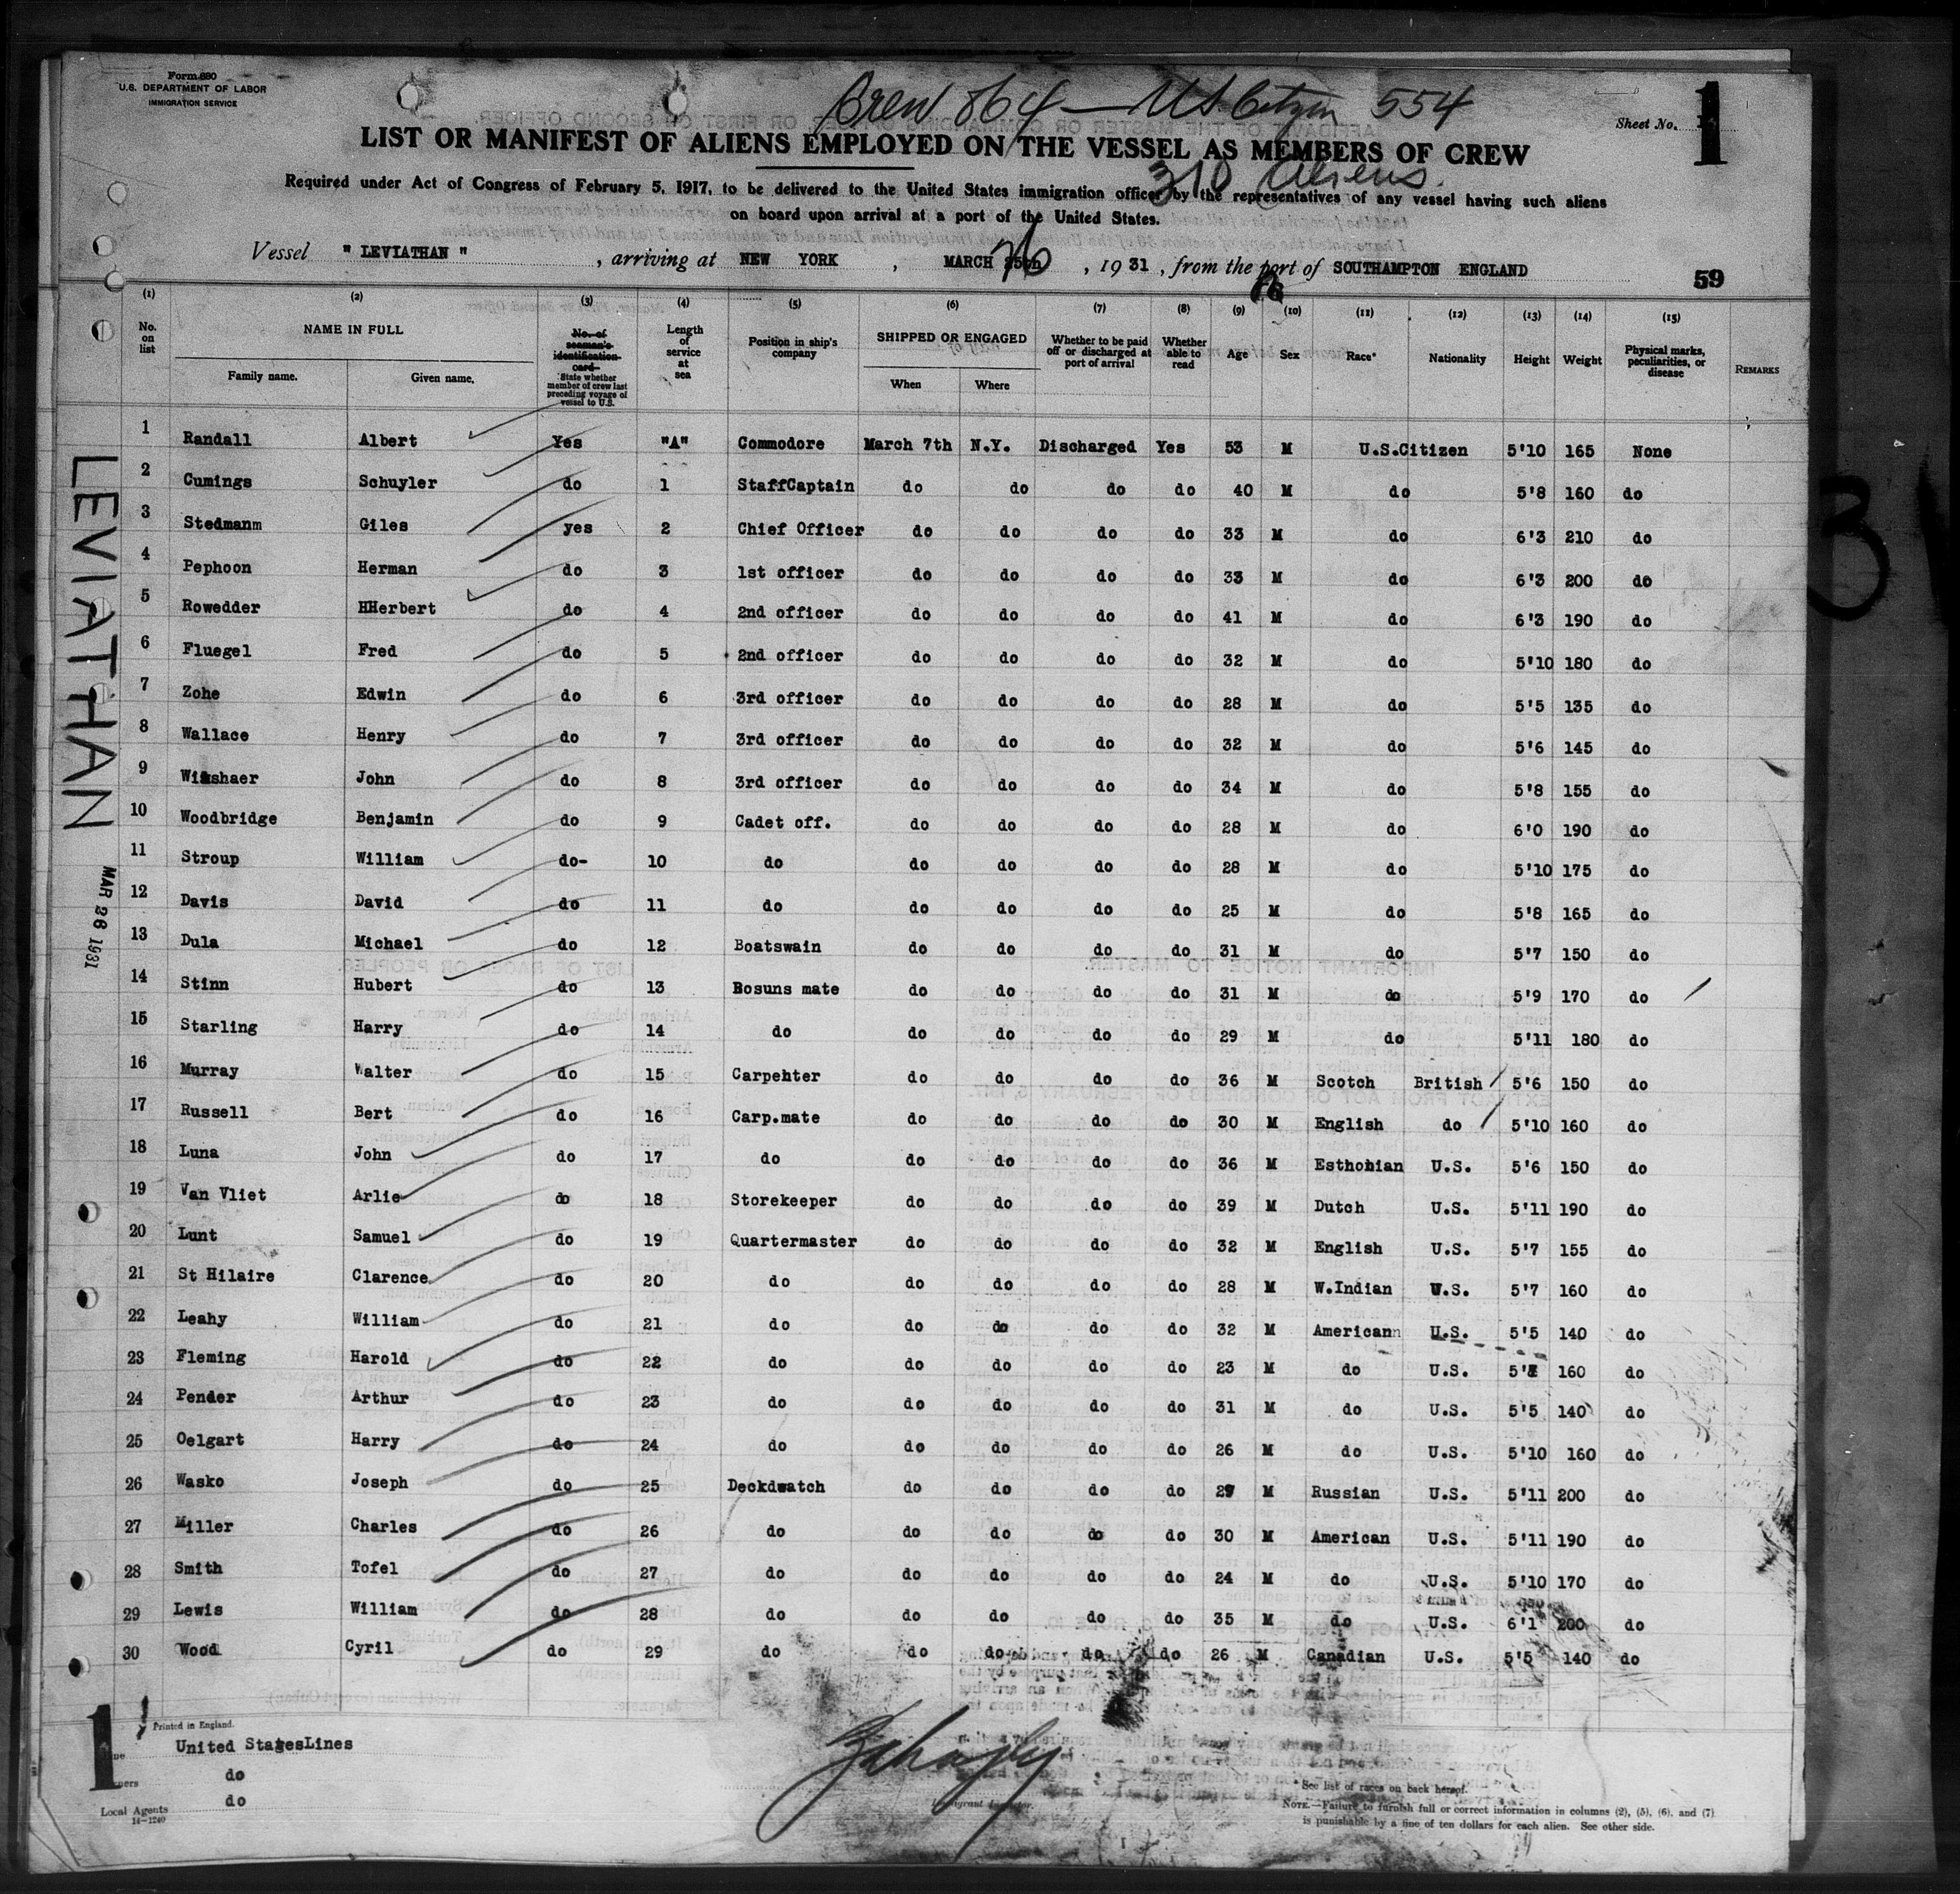 Form 680
U.S. DEPARTMENT OF LABOR
IMMIGRATION SERVICE
Crew 864 — U.S. Citizen 554
Sheet No. 1
LIST OR MANIFEST OF ALIENS EMPLOYED ON THE VESSEL AS MEMBERS OF CREW
310 Aliens.
Required under Act of Congress of February 5, 1917, to be delivered to the United States immigration officer by the representatives of any vessel having such aliens
on board upon arrival at a port of the United States.
Vessel " LEVIATHAN " , arriving at NEW YORK , MARCH 26 , 19 31 , from the port of SOUTHAMPTON ENGLAND
59
(1) (2) (3) (4) (5) (6) (7) (8) (9) (10) (11) (12) (13) (14) (15)
No. on list NAME IN FULL Family name. Given name. No. of seaman's identification card State whether member of crew last preceding voyage of vessel to U.S. Length of service at sea Position in ship's company SHIPPED OR ENGAGED When Where Whether to be paid off or discharged at port of arrival Whether able to read Age Sex Race* Nationality Height Weight Physical marks, peculiarities, or disease REMARKS
1 Randall Albert Yes "A" Commodore March 7th N.Y. Discharged Yes 53 M U.S.Citizen 5'10 165 None
2 Cumings Schuyler do 1 StaffCaptain do do do do 40 M do 5'8 160 do
3 Stedmanm Giles yes 2 Chief Officer do do do do 33 M do 6'3 210 do
4 Pephoon Herman do 3 1st officer do do do do 33 M do 6'3 200 do
5 Rowedder HHerbert do 4 2nd officer do do do do 41 M do 6'3 190 do
6 Fluegel Fred do 5 2nd officer do do do do 32 M do 5'10 180 do
7 Zohe Edwin do 6 3rd officer do do do do 28 M do 5'5 135 do
8 Wallace Henry do 7 3rd officer do do do do 32 M do 5'6 145 do
9 John do 8 3rd officer do do do do 34 M do 5'8 155 do
10 Woodbridge Benjamin do 9 Cadet off. do do do do 28 M do 6'0 190 do
11 Stroup William do- 10 do do do do do 28 M do 5'10 175 do
12 Davis David do 11 do do do do do 25 M do 5'8 165 do
13 Dula Michael do 12 Boatswain do do do do 31 M do 5'7 150 do
14 Stinn Hubert do 13 Bosuns mate do do do do 31 M do 5'9 170 do
15 Starling Harry do 14 do do do do do 29 M do 5'11 180 do
16 Murray Walter do 15 Carpehter do do do do 36 M Scotch British 5'6 150 do
17 Russell Bert do 16 Carp.mate do do do do 30 M English do 5'10 160 do
18 Luna John do 17 do do do do do 36 M Esthonian U.S. 5'6 150 do
19 Van Vliet Arlie do 18 Storekeeper do do do do 39 M Dutch U.S. 5'11 190 do
20 Lunt Samuel do 19 Quartermaster do do do do 32 M English U.S. 5'7 155 do
21 St Hilaire Clarence do 20 do do do do do 28 M W.Indian U.S. 5'7 160 do
22 Leahy William do 21 do do do do do 32 M Americann U.S. 5'5 140 do
23 Fleming Harold do 22 do do do do do 23 M do U.S. 160 do
24 Pender Arthur do 23 do do do do do 31 M do U.S. 5'5 140 do
25 Oelgart Harry do 24 do do do do do 26 M do U.S. 5'10 160 do
26 Wasko Joseph do 25 Deckdwatch do do do do 29 M Russian U.S. 5'11 200 do
27 Miller Charles do 26 do do do do do 30 M American U.S. 5'11 190 do
28 Smith Tofel do 27 do do do do do 24 M do U.S. 5'10 170 do
29 Lewis William do 28 do do do do do 35 M do U.S. 6'1 200 do
30 Wood Cyril do 29 do do do do do 26 M Canadian U.S. 5'5 140 do
LEVIATHAN
MAR 26 1931
1
Printed in England.
United StatesLines
do
Local Agents do
14-1240
Immigrant Inspector.
* See list of races on back hereof.
NOTE.—Failure to furnish full or correct information in columns (2), (5), (6), and (7)
is punishable by a fine of ten dollars for each alien. See other side.